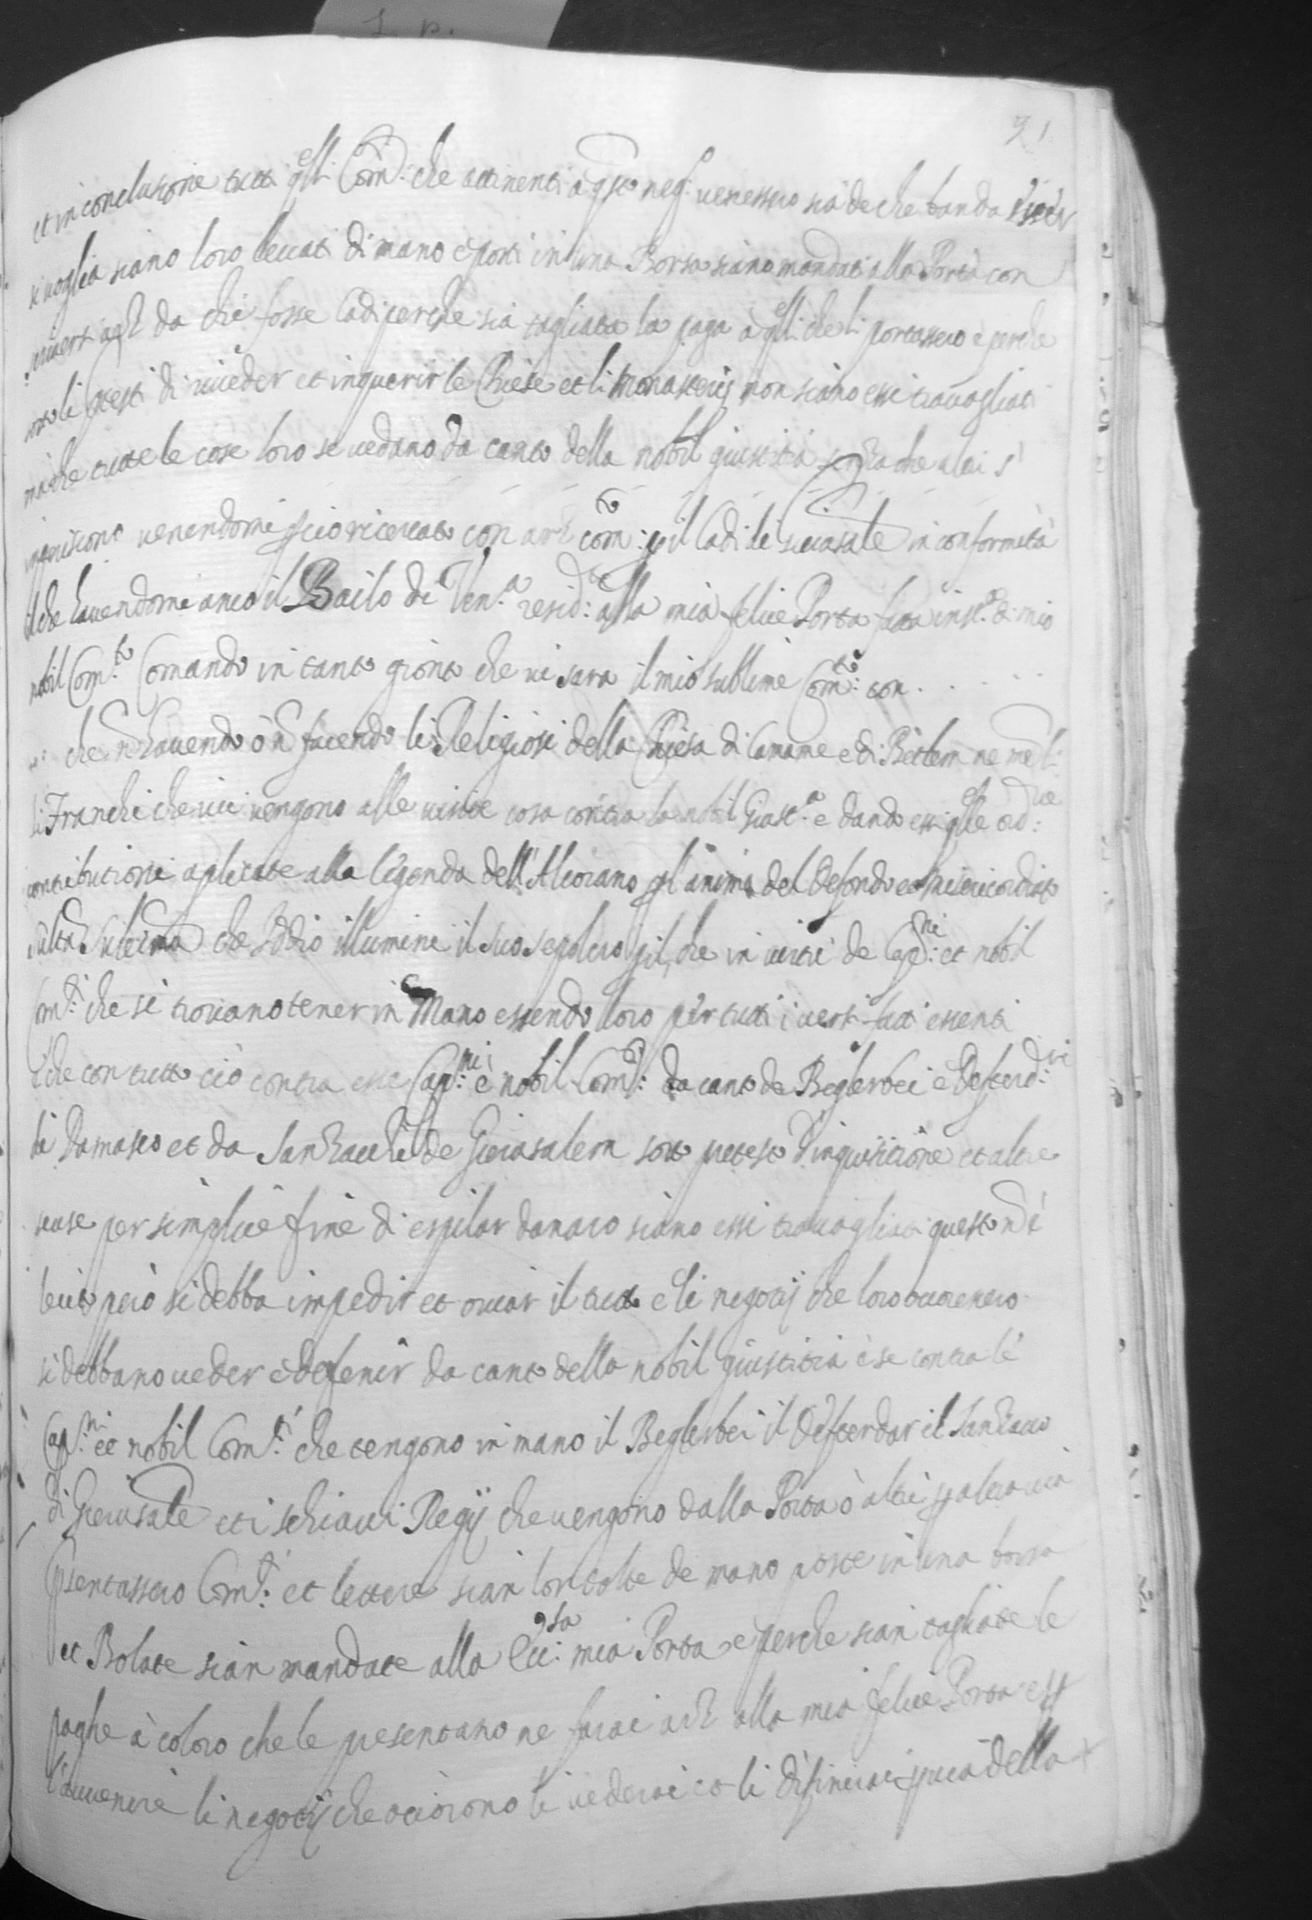 91
et in conclusione tutti q.lli Com.ti che attinenti à q.sto neg.o venessero sia de che banda
si voglia siano loro levati di mano e posti in una Borsa siano mandati alla Porta con
da che fosse Cadi perche sia tagliata la paga à q.lli che li portassero e perche
sotto li p̄testi di riveder et inquerir le Chiese et li Monasterij non siano essi travagliati
mà che tutte le cose loro se vedano da canto della nobil giustitia senza che altri s'
ingeriscano venendomi p̄ ciò ricercato con arz Com.to p̄ il Cadi di Gierusale in conformità
il che havendomi anco il Bailo di Ven.a resid.te alla mia felice Porta fatta inst.a di mio
nobil Com.to Comando in tanto gionto che vi sara il mio sublime Com.to con . . . . .
che n̄ havendo ò n̄ facendo li Religiosi della Chiesa di Camame e di Betlem ne meno
li Franchi che ivi vengono alle visite cosa contra la nobil Giust.a e dando essi q.lle ord.rie
contributioni aplicate alla legenda dell'Alcorano p̄ l'anima del defondo et misericordiato
Sultan che Iddio illumine il suo sepolcro p̄ il che in virtù de Cap.ni et nobil
Com.ti che si trovano tener in Mano essendo loro per tutti i versi fatti essenti
e che con tutto ciò contra esse Cap.ni e nobil Com.ti da canto de Beglerbei e Defterd.ri
di Damasco et da Sanzacchi de Gierusalem sotto pretesto d'inquisitione et altre
scuse per simplice fine di espilar danaro siano essi travagliati questo n̄ è
lecito però si debba impedir et oviar il tutto e li negotij che loro occorrero
si debbano veder e definir da canto della nobil giustitia e se contra le
Cap.ni et nobil Com.ti che tengono in mano il Beglerbei il Defterdar il Sanzacco
di Gierusale et i schiavi Regij che vengino dalla Porta ò altri p̄ altra via
p̄sentassero Com.ti et lettere sian lor tolte de mano poste in una borsa
et Bolate sian mandate alla Ecc.sa mia Porta e perche sian tagliate le
paghe à coloro che le presentano ne farai arz alla mia felice Porta et p̄
l'avvenire li negotij che occorono li vederai et li difinirai della